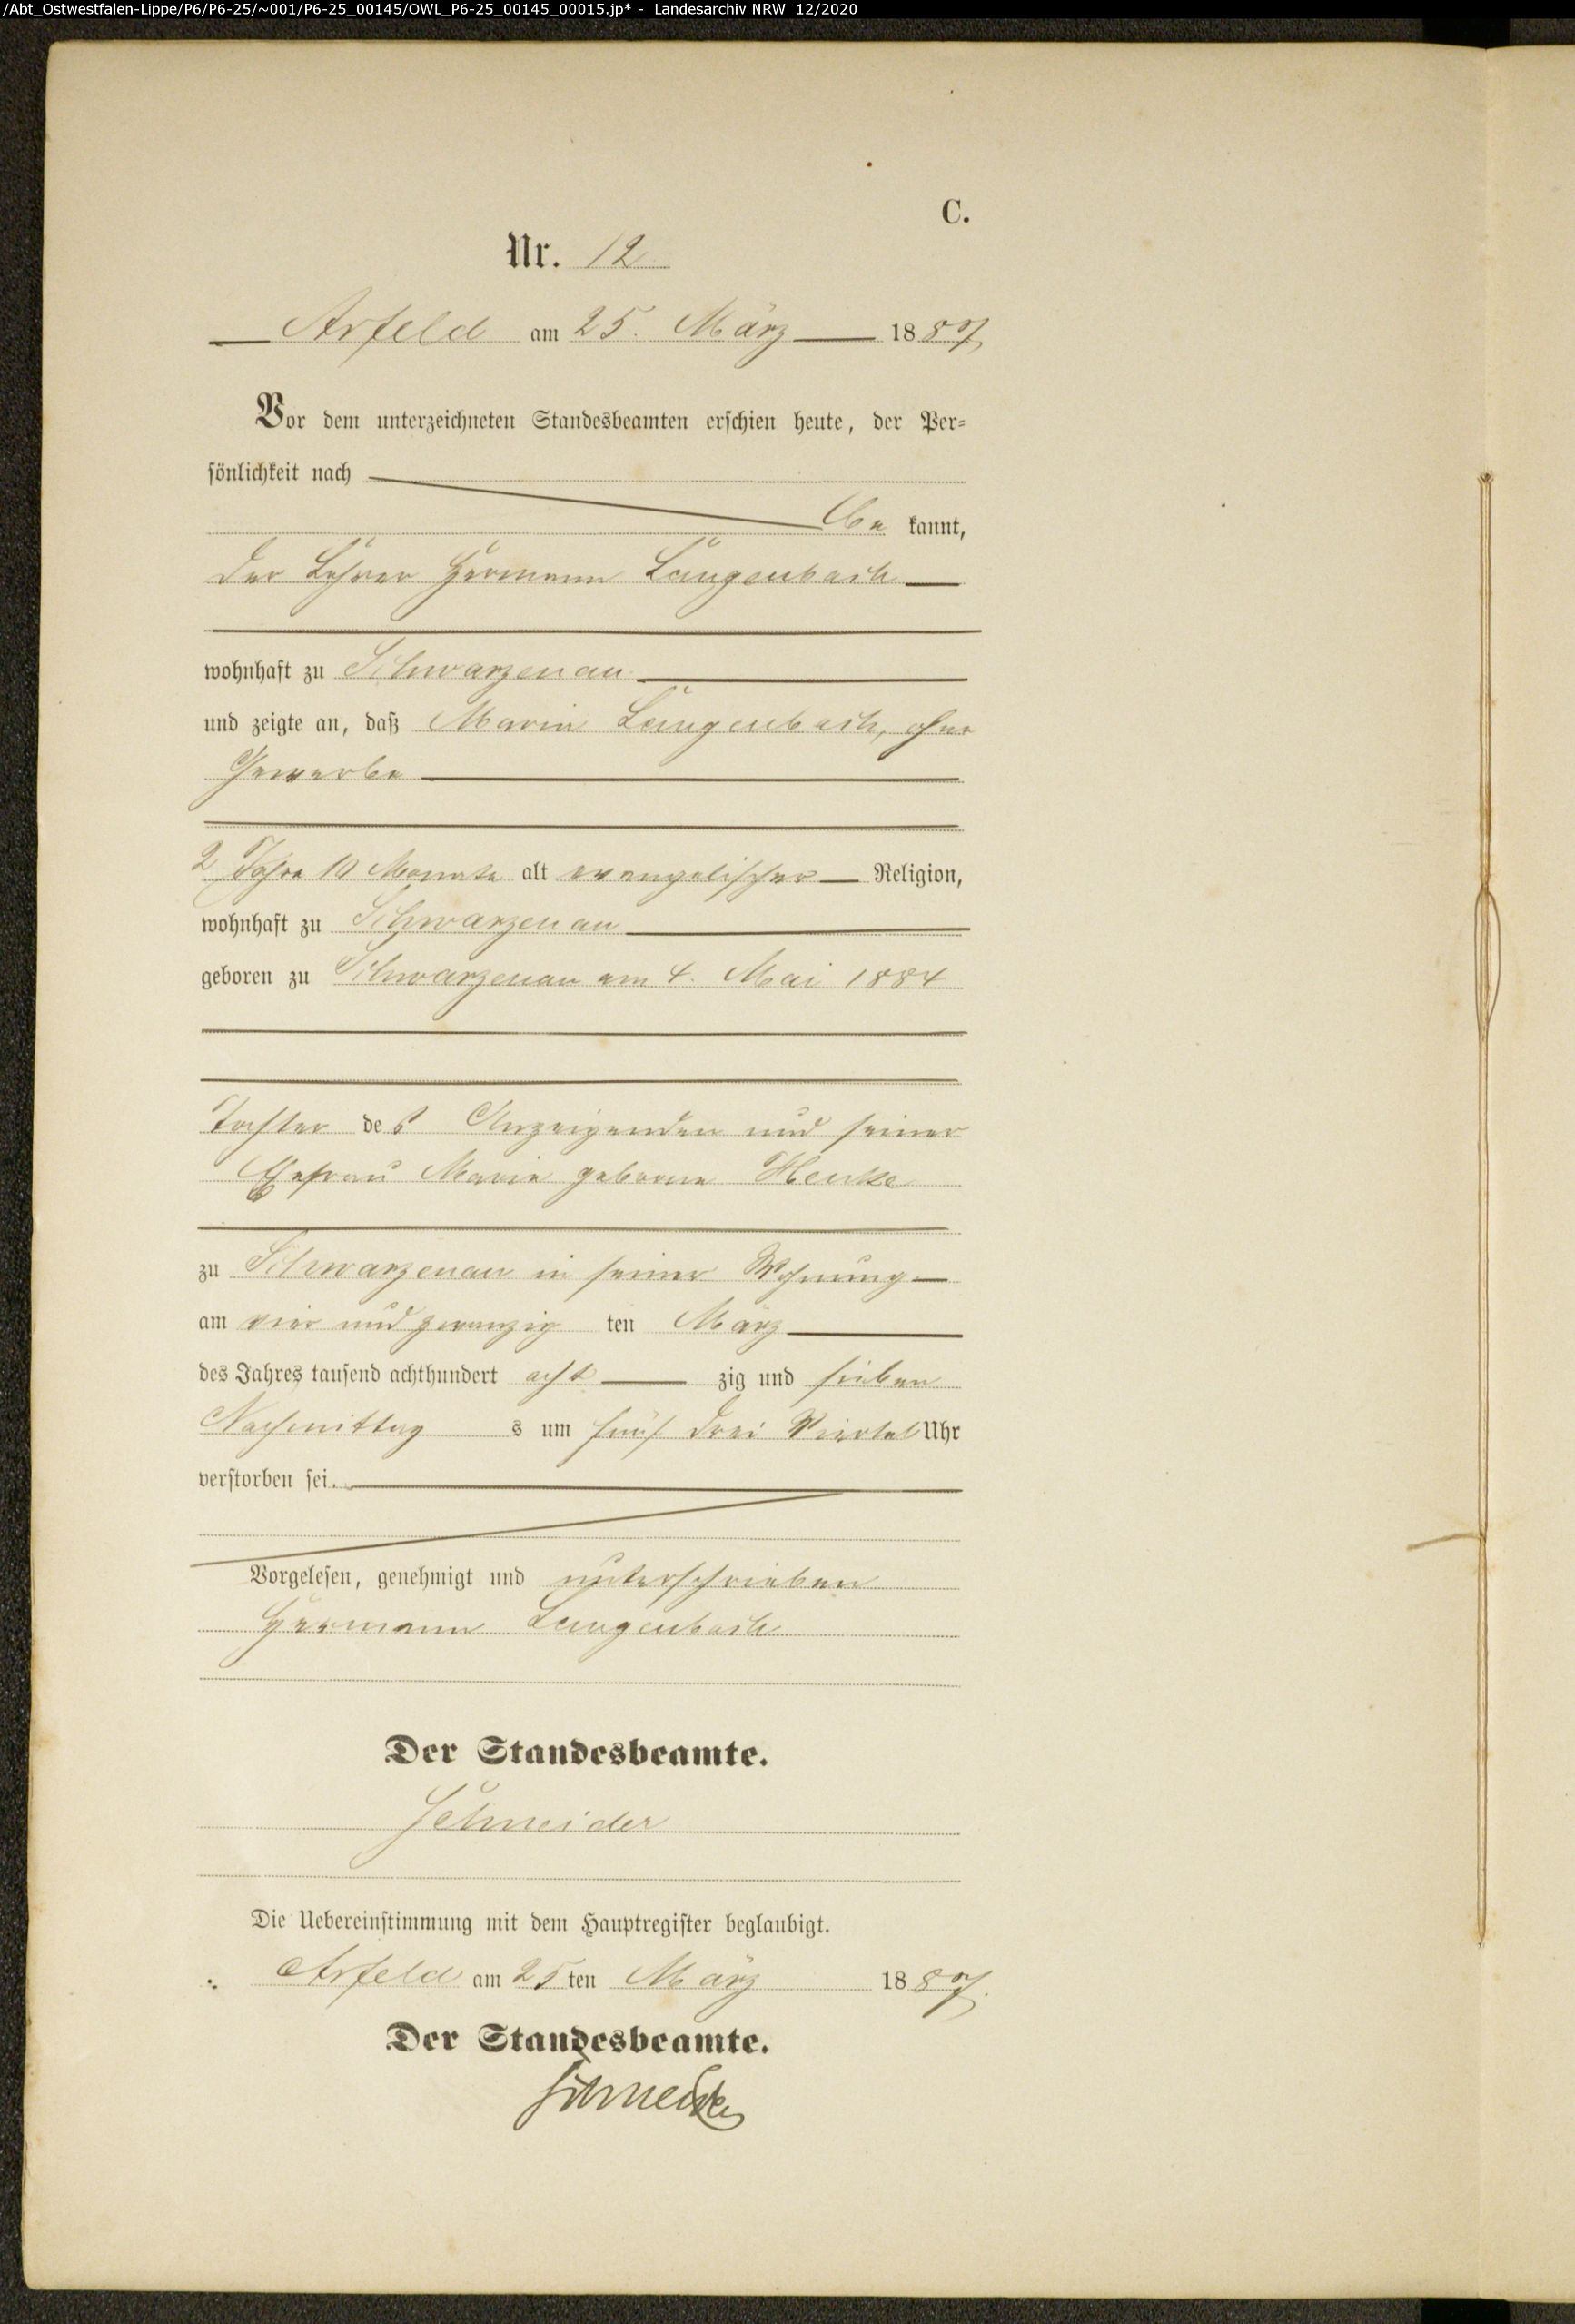 /Abt_Ostwestfalen-Lippe/P6/P6-25/~001/P6-25_00145/OWL_P6-25_00145_00015.jp* - Landesarchiv NRW 12/2020
C.
Nr. 12
Arfeld am 25. März 1887
Vor dem unterzeichneten Standesbeamten erschien heute, der Per-
sönlichkeit nach
be kannt,
der Lehrer Hermann Laugenbach
wohnhaft zu Schwarzenau
und zeigte an, daß Marie Laugenbach, ohne
Gewerbe
2 Jahre 10 Monate alt evangelischer Religion,
wohnhaft zu Schwarzenau
geboren zu Schwarzenau am 4. Mai 1884
Tochter des Anzeigenden und seiner
Ehefrau Marie geborne Henke
zu Schwarzenau in seiner Wohnung
am vier und zwanzig ten März
des Jahres tausend achthundert acht zig und sieben
Nachmittag s um fünf drei Viertel Uhr
verstorben sei.
Vorgelesen, genehmigt und unterschrieben
Hermann Laugenbach
Der Standesbeamte.
Schneider
Die Uebereinstimmung mit dem Hauptregister beglaubigt.
Arfeld am 25 ten März 1887.
Der Standesbeamte.
Schneider